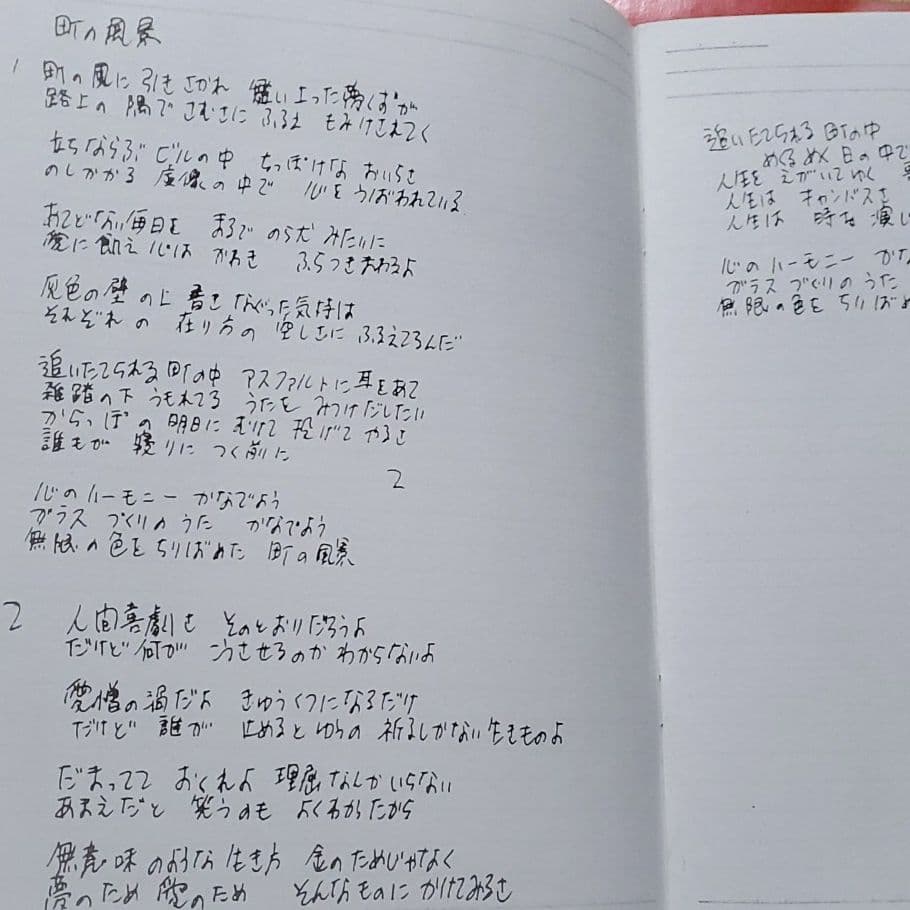 町の風景
1 町の風に 引きさかれ 舞い上った 夢くずが
路上の 隅で さむさに ふるえ もみけされてく
立ちならぶ ビルの中 ちっぽけな おいらさ
のしかかる 虚像の中で 心を うばわれている
あてどない毎日を まるで のら犬 みたいに
愛に飢え 心は かわき ふらつきまわるよ
灰色の壁の上 書きなぐった気持は
それぞれの 在り方の 空しさに ふるえてるんだ
追いたてられる 町の中 アスファルトに耳をあて
雑踏の下 うもれてる うたを みつけだしたい
からっぽの 明日に むけて 投げて やるさ
誰もが 寝りに つく前に
2
心のハーモニー かなでよう
ガラス づくりの うた かなでよう
無限の色を ちりばめた 町の風景
2 人間喜劇さ そのとおりだろうよ
だけど 何が こうさせるのか わからないよ
愛憎の渦だよ きゅうくつになるだけ
だけど 誰が 止めると ゆうの 祈るしかない 生きものよ
だまってて おくれよ 理屈なんか いらない
あまえだと 笑うのも よくわかったから
無意味のような 生き方 金のためじゃなく
夢のため 愛のため そんなものに かけてみるさ
追いたてられる 町の中
めくるめく 日の中で
人生を えがいてゆく
人生は キャンバスさ
人生は 時を 演じ
心の ハーモニー かな
ガラス づくりの うた
無限の色を ちりばめ